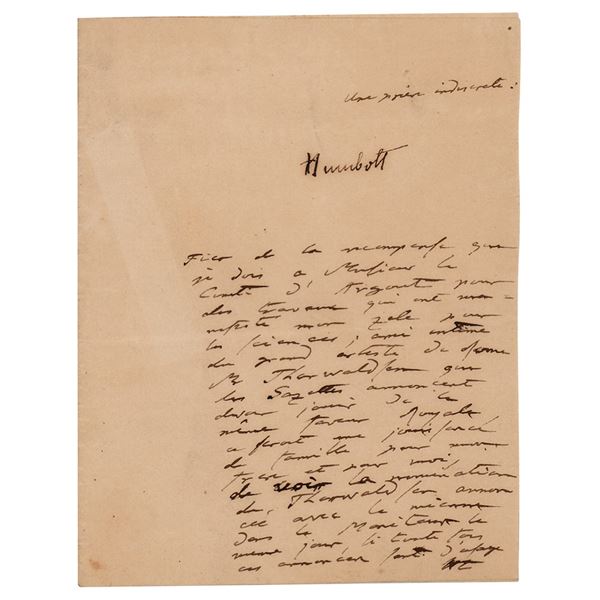 Une prière indiscrete:
Humboltt
Fier de la recompense que
je dois a Monsieur le
Comte d'Argout pour
des travaux qui ont mani=
festé mon zele pour
les sciences, ami intime
du grand artiste de Rome
Mr Thorwaldsen que
les Gazettes annoncent
devoir jouir de la
même faveur Royale
ce seroit une jouissance
de famille pour mon
frere et pour moi,
de voir la nomination
de Thorwaldsen annon
cée avec la mienne
dans le Moniteur le
meme jour si toute fois
ces annonces sont d'usage
Ht